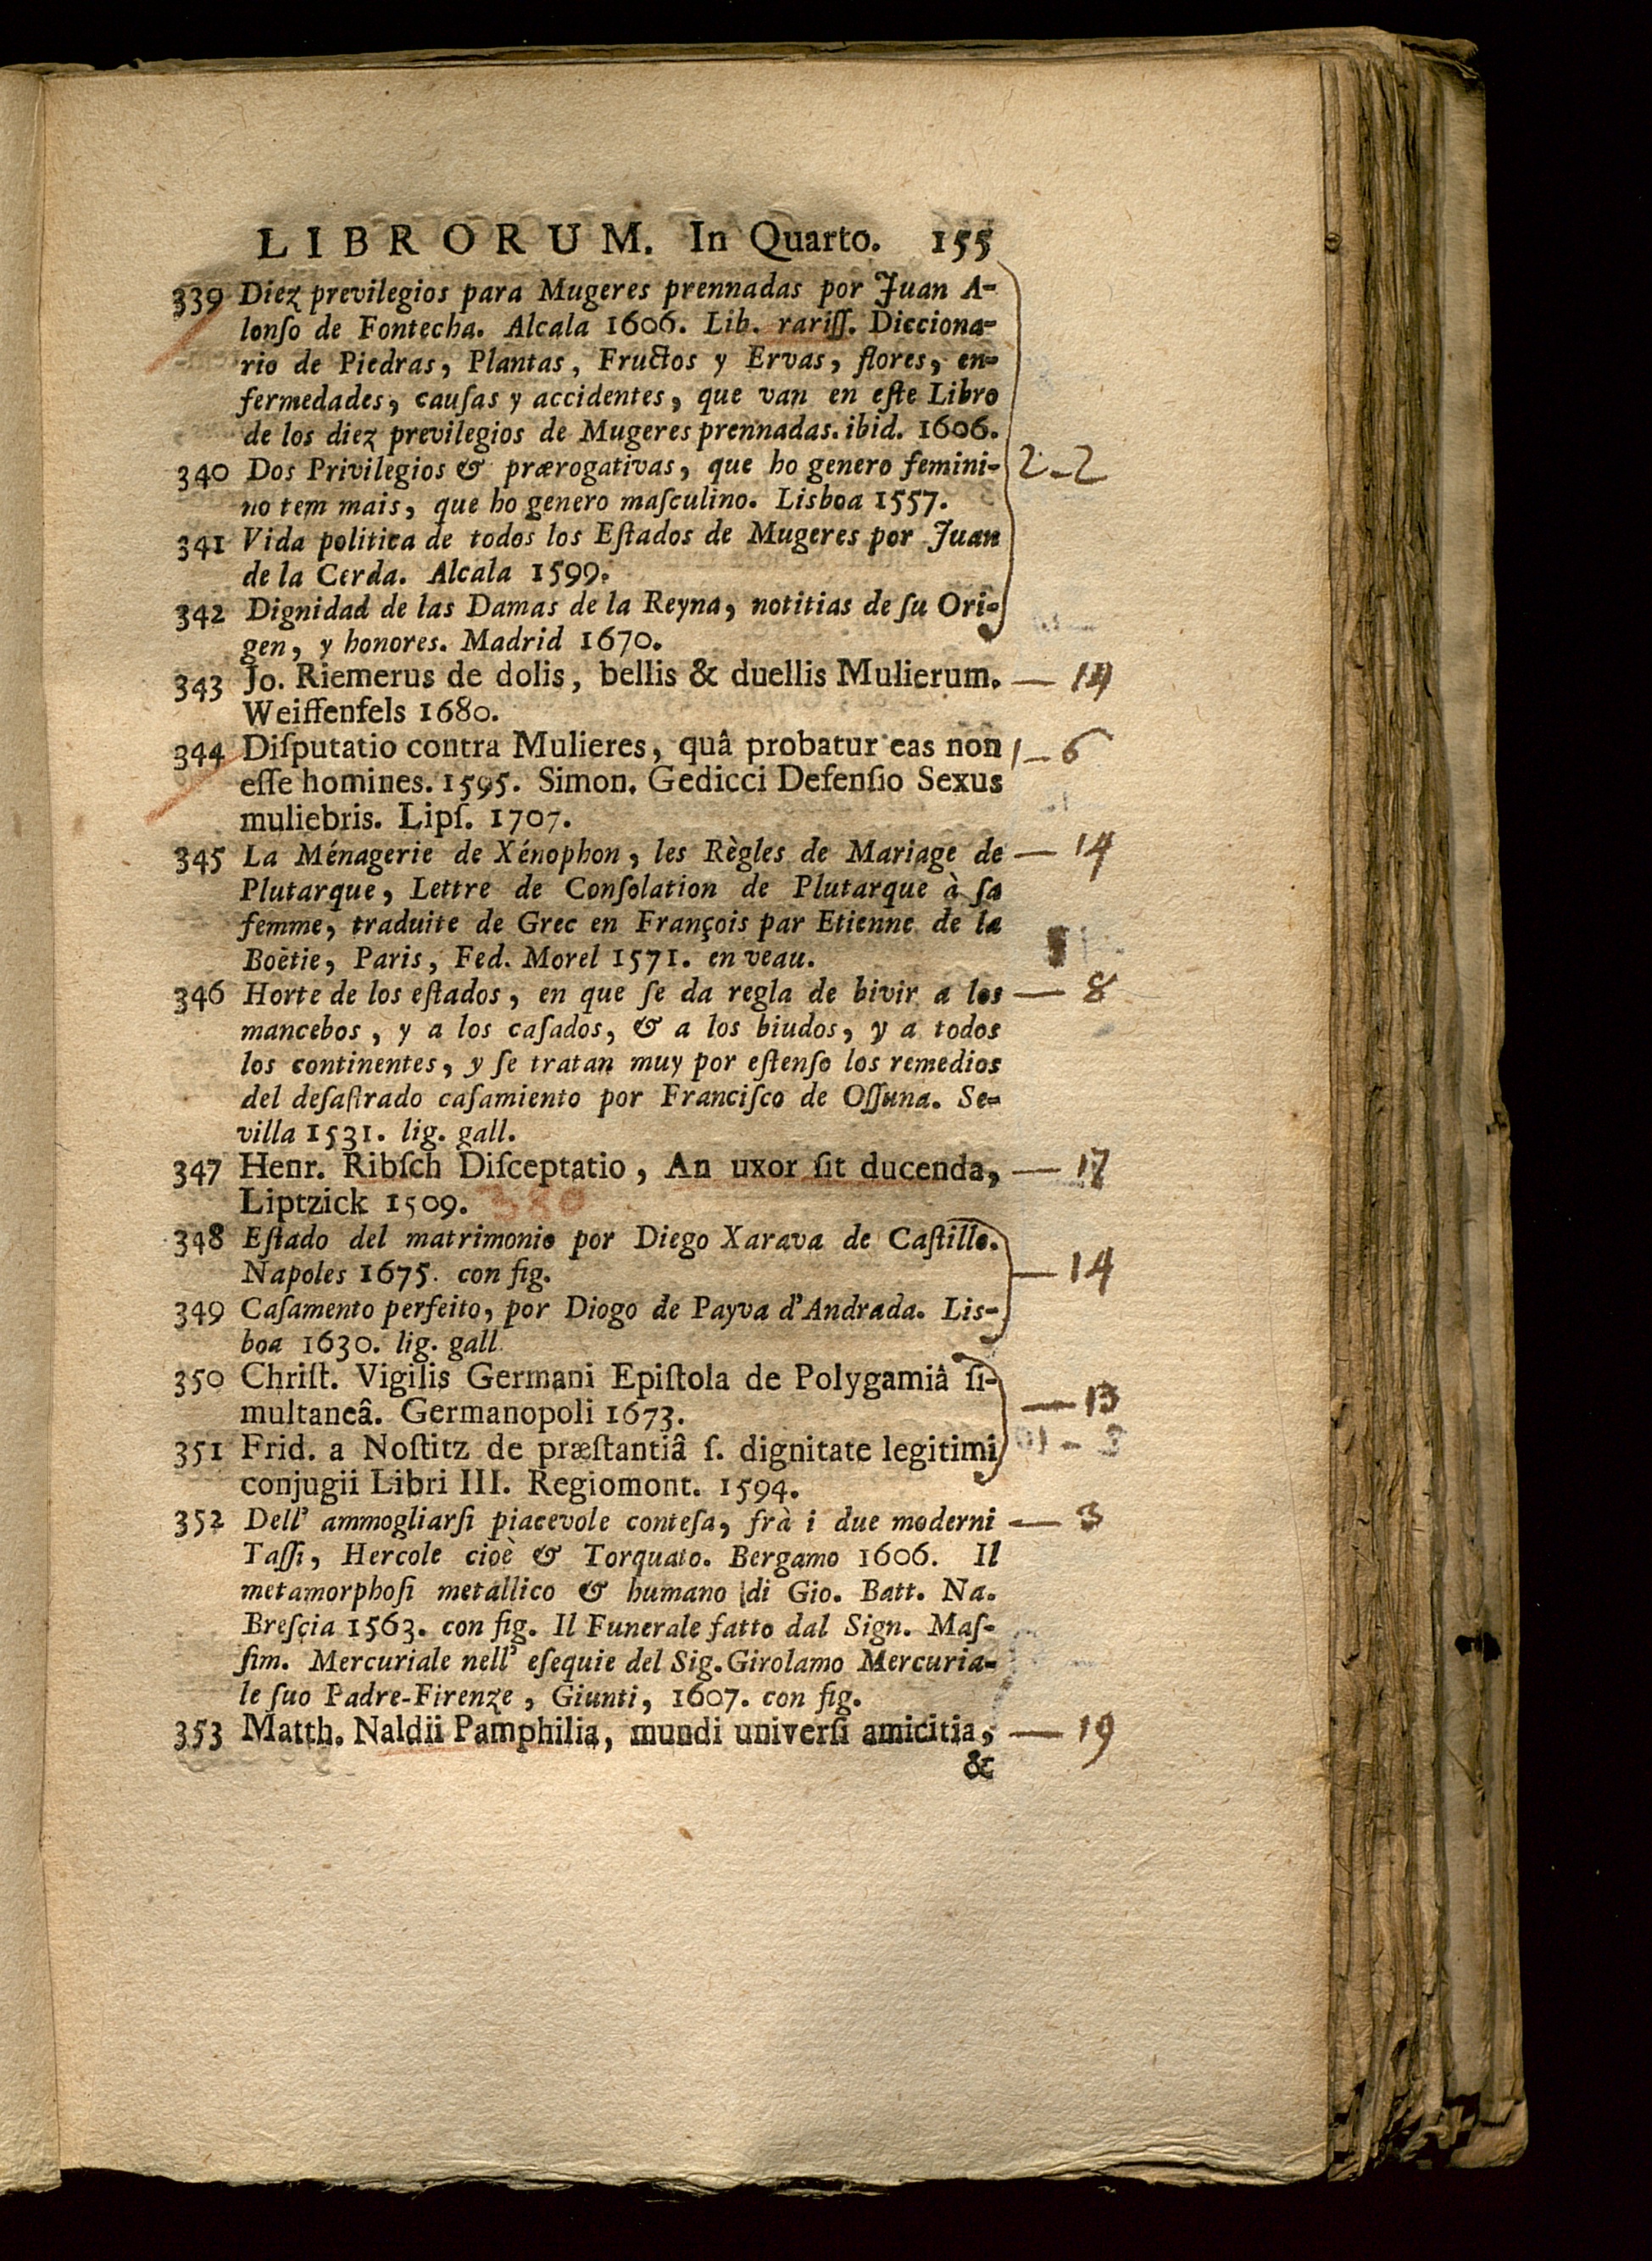 LIBRORUM. In Quarto. 155
339 Diez previlegios para Mugeres prennadas por Juan A-
lonſo de Fontecha. Alcala 1606. Lib. rariſſ. Dicciona-
rio de Piedras, Plantas, Fructos y Ervas, flores, en-
fermedades, cauſas y accidentes, que van en eſte Libro
de los diez previlegios de Mugeres prennadas. ibid. 1606.
340 Dos Privilegios & prærogativas, que ho genero femini- 2-2
no tem mais, que ho genero maſculino. Lisboa 1557.
341 Vida politica de todos los Eſtados de Mugeres por Juan
de la Cerda. Alcala 1599.
342 Dignidad de las Damas de la Reyna, notitias de ſu Ori-
gen, y honores. Madrid 1670.
343 Jo. Riemerus de dolis, bellis & duellis Mulierum. —
Weiſſenfels 1680.
344 Diſputatio contra Mulieres, quâ probatur eas non 1-6
eſſe homines. 1595. Simon. Gedicci Defenſio Sexus
muliebris. Lipſ. 1707.
345 La Ménagerie de Xénophon, les Règles de Mariage de — 14
Plutarque, Lettre de Conſolation de Plutarque à ſa
femme, traduite de Grec en François par Etienne de la
Boëtie, Paris, Fed. Morel 1571. en veau.
346 Horte de los eſtados, en que ſe da regla de bivir a los — 8
mancebos, y a los caſados, & a los biudos, y a todos
los continentes, y ſe tratan muy por eſtenſo los remedios
del deſaſtrado caſamiento por Franciſco de Oſſuna. Se-
villa 1531. lig. gall.
347 Henr. Ribſch Diſceptatio, An uxor ſit ducenda, — 17
Liptzick 1509. 380
348 Eſtado del matrimonio por Diego Xarava de Caſtillo.
Napoles 1675. con fig. — 14
349 Caſamento perfeito, por Diogo de Payva d'Andrada. Lis-
boa 1630. lig. gall.
350 Chriſt. Vigilis Germani Epiſtola de Polygamiâ ſi-
multaneâ. Germanopoli 1673. — 13
351 Frid. a Noſtitz de præſtantiâ ſ. dignitate legitimi
conjugii Libri III. Regiomont. 1594.
352 Dell' ammogliarſi piacevole conteſa, frà i due moderni — 3
Taſſi, Hercole cioè & Torquato. Bergamo 1606. Il
metamorphoſi metallico & humano di Gio. Batt. Na.
Breſcia 1563. con fig. Il Funerale fatto dal Sign. Maſ-
ſim. Mercuriale nell' eſequie del Sig. Girolamo Mercuria-
le ſuo Padre-Firenze, Giunti, 1607. con fig.
353 Matth. Naldii Pamphilia, mundi univerſi amicitia, — 19
&